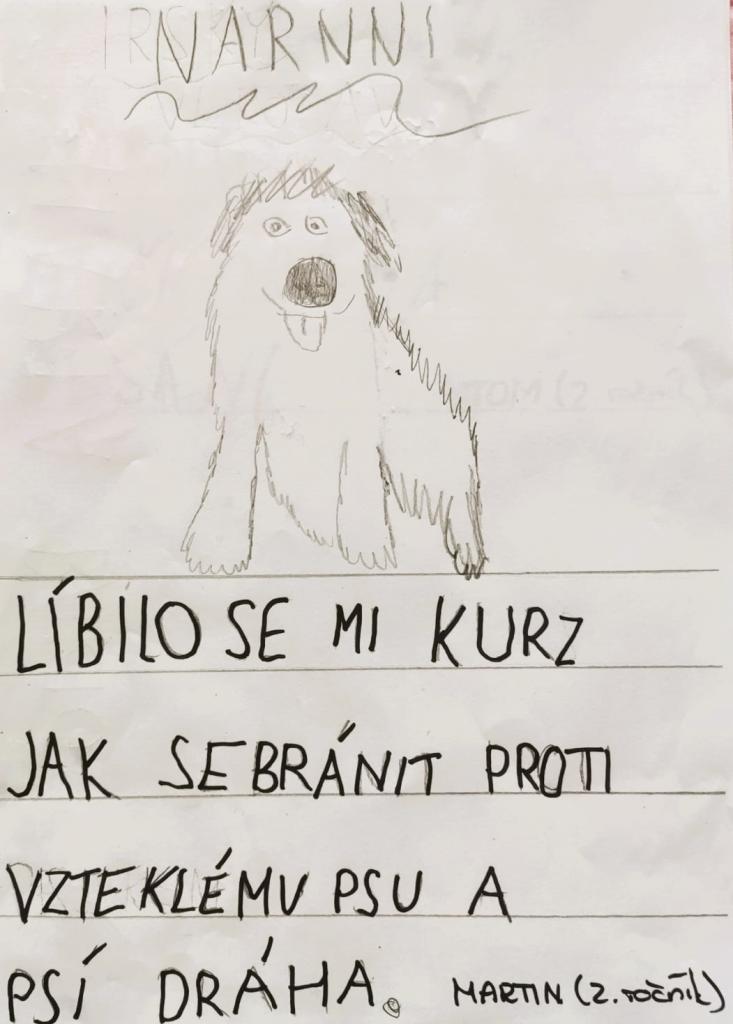 NARNNI
LÍBILO SE MI KURZ
JAK SE BRÁNIT PROTI
VZTEKLÉMU PSU A
PSÍ DRÁHA.
MARTIN (2. ročník)